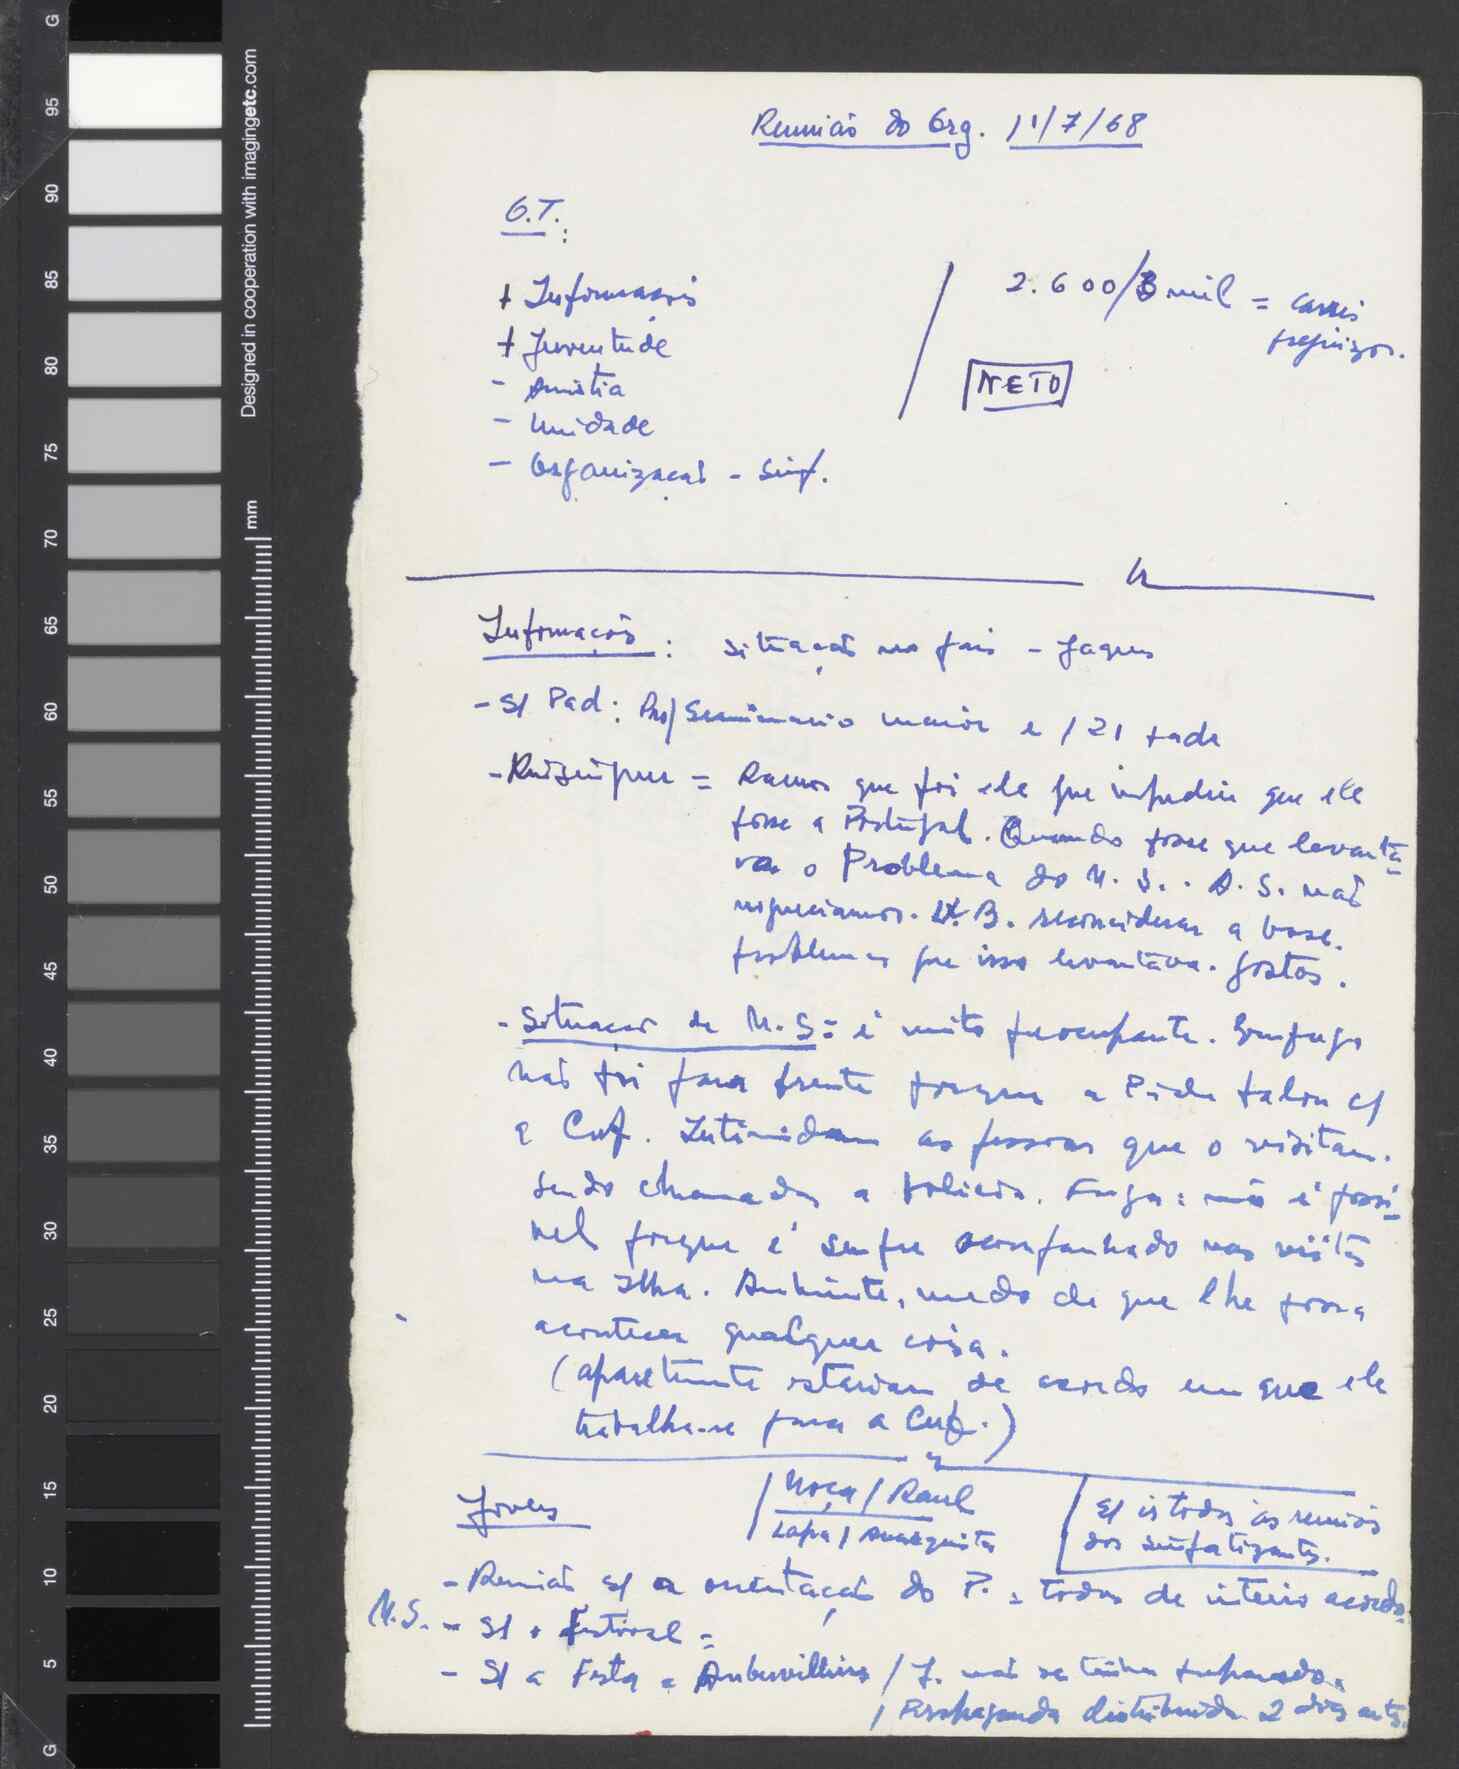 Reunião do Org. 11/7/68
O.T.:
+ Informações
+ Juventude
- Amnistia
- Unidade
- Organização - Sind.
2.600/3 mil = carris
NETO
Informações: situação no país - Jaques
- S/ Pad: Seminário maior e 121 Padre
= Ramos que foi ele que impediu que ele
fosse a Portugal. Quando fosse que levanta-
va o Problema do M. S. . A. S. não
B. reconsiderar a base.
problemas que isso levantava. Gostos.
- Situação de M. S: é muito preocupante. Emprego
não foi para frente porque a Pide falou c/
a Cuf. Intimidam as pessoas que o visitam.
sendo chamados a polícia. Fuga: não é possí-
vel porque é sempre acompanhado nas visitas
na Ilha. Ambiente, medo de que lhe possa
acontecer qualquer coisa.
(aparetemente estariam de acordo em que ele
trabalha-se para a Cuf.)
Jovens
/ Raul
Lapa / Mesquita
S/ is todos às reuniões
dos simpatizantes.
- Reunião s/ a orientação do P. = todos de inteiro acordo.
M.S. - S/ o Festival =
- S/ a Festa a Aubervilliers / J. não se tinha preparado.
/ Propaganda distribuida 2 dias antes.
Designed in cooperation with imagingetc.com
mm
G
95
90
85
80
75
70
65
60
55
50
45
40
35
30
25
20
15
10
5
G